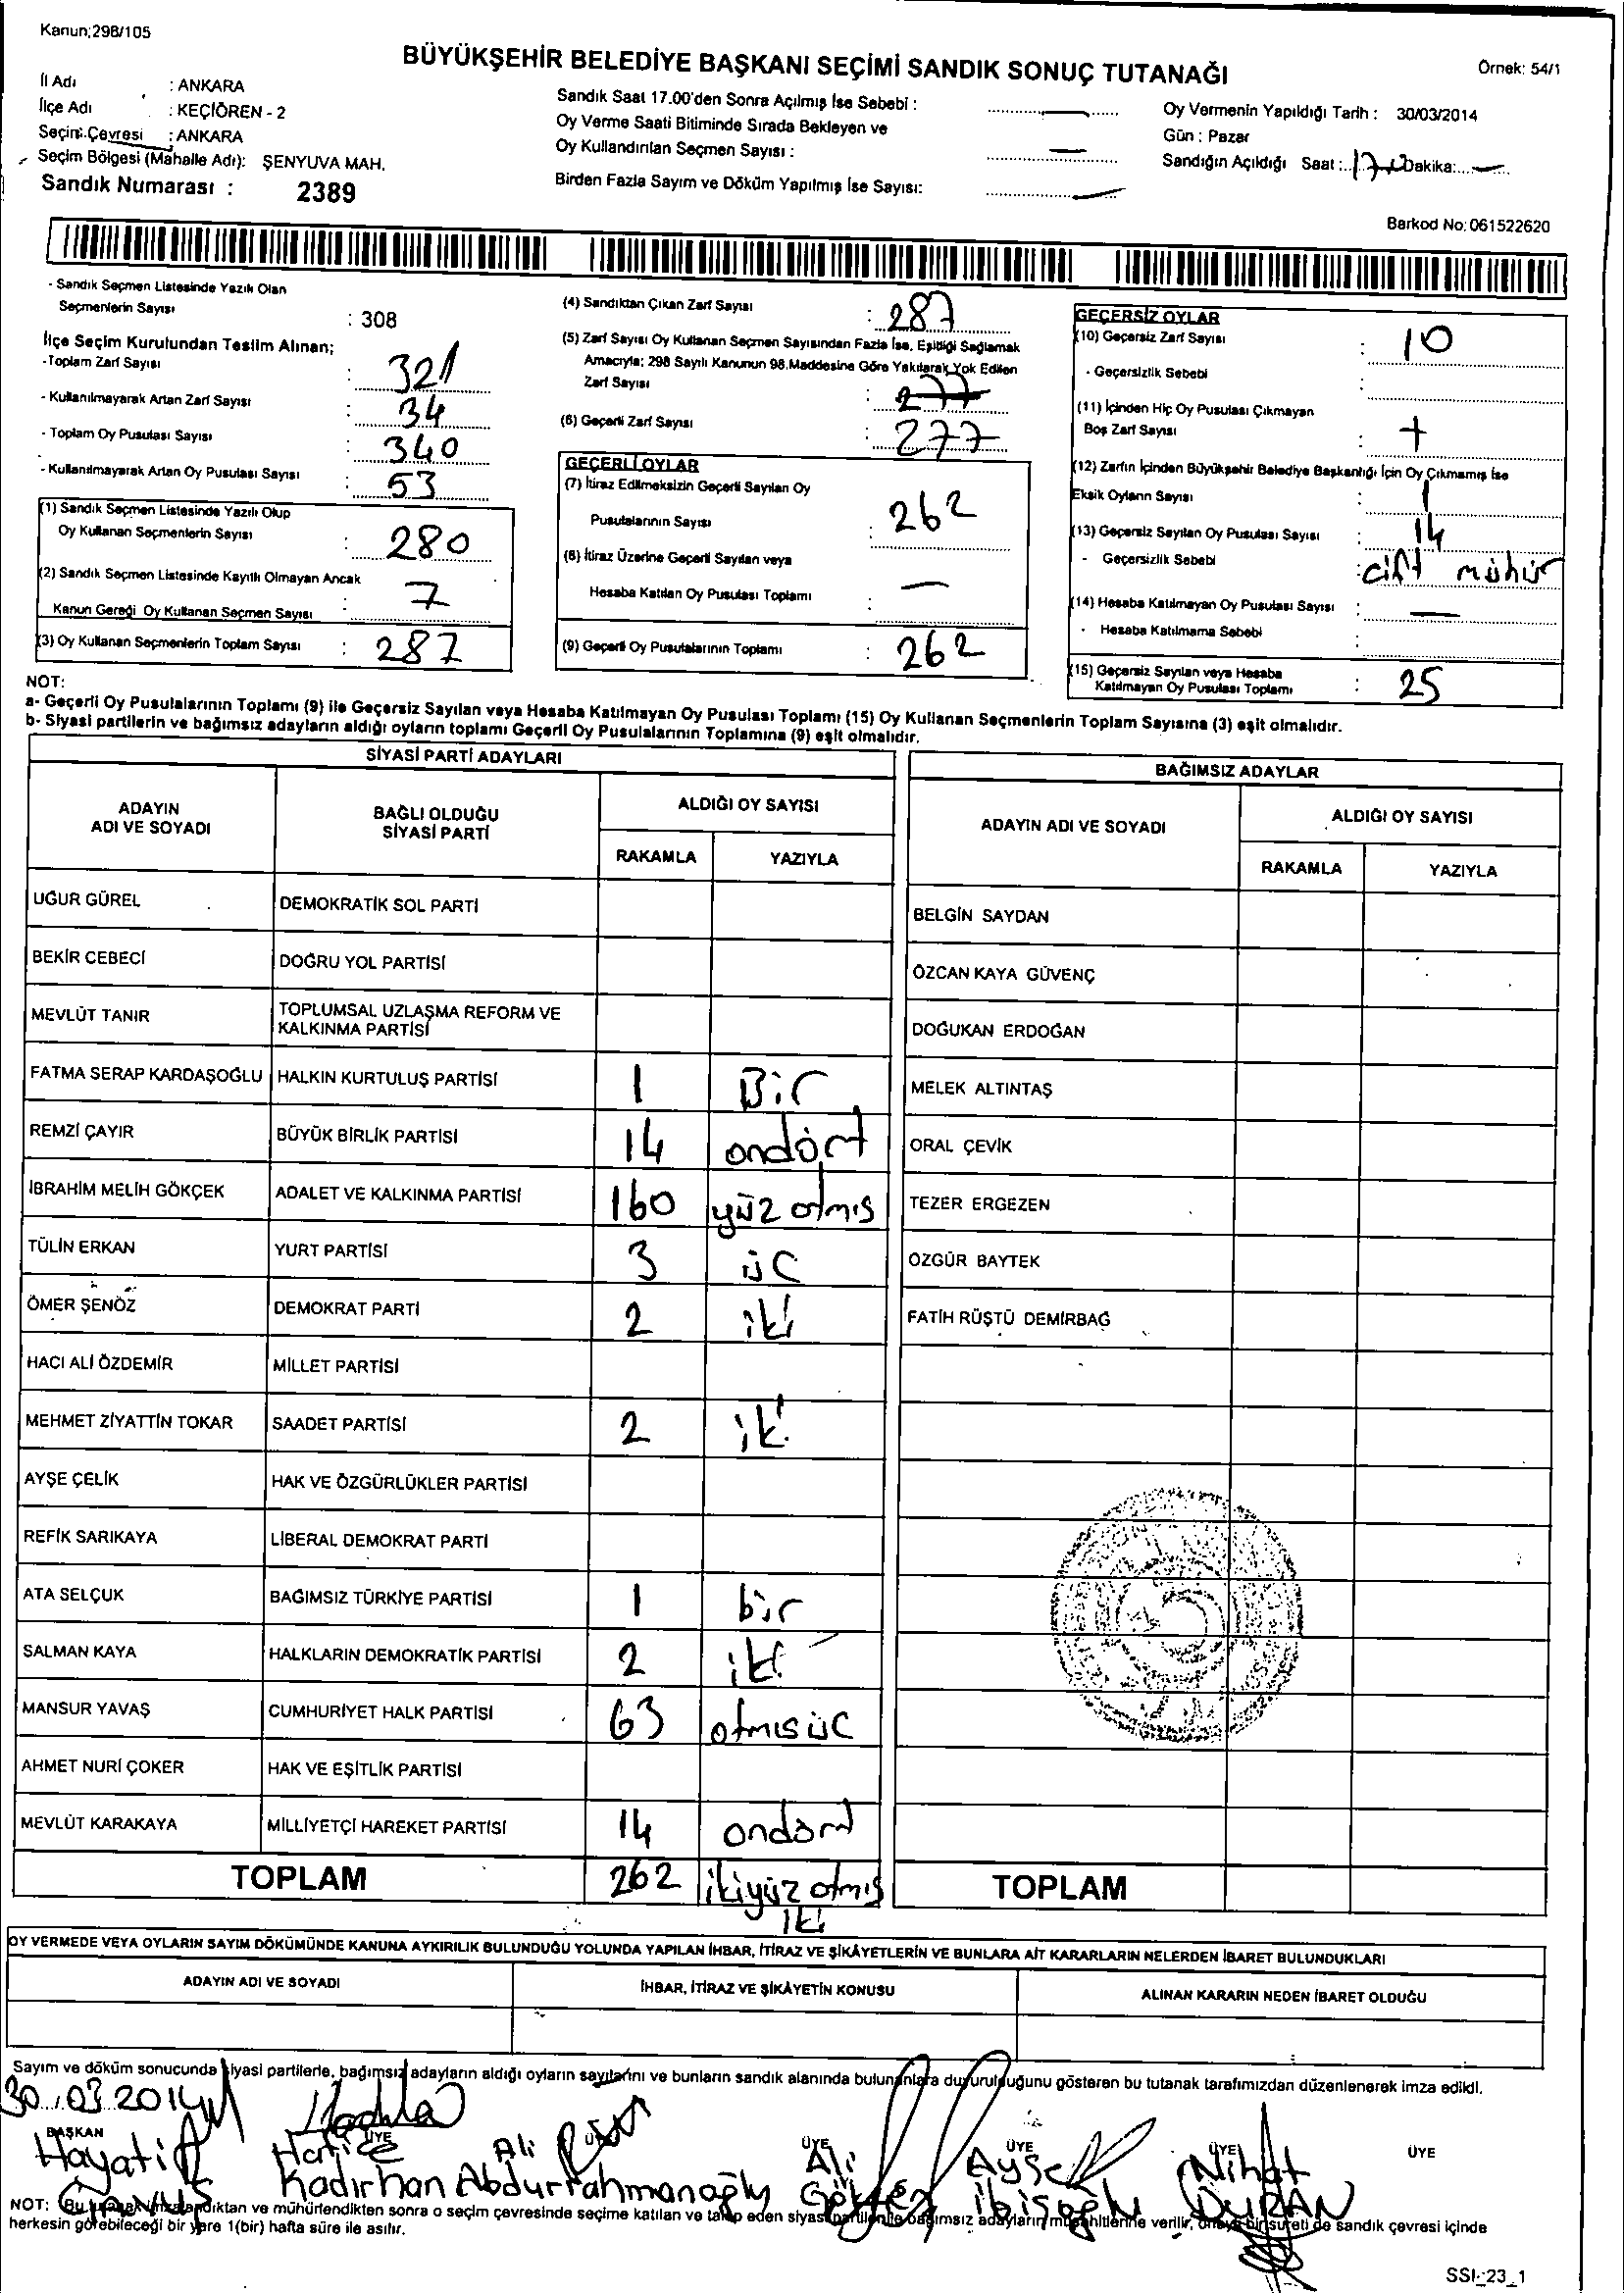 Kanun;298/105
BÜYÜKŞEHİR BELEDİYE BAŞKANI SEÇİMİ SANDIK SONUÇ TUTANAĞI
Örnek: 54/1
İl Adı : ANKARA
İlçe Adı : KEÇİÖREN - 2
Seçim Çevresi : ANKARA
Seçim Bölgesi (Mahalle Adı): ŞENYUVA MAH.
Sandık Numarası : 2389
Sandık Saat 17.00'den Sonra Açılmış İse Sebebi : —
Oy Verme Saati Bitiminde Sırada Bekleyen ve
Oy Kullandırılan Seçmen Sayısı : —
Birden Fazla Sayım ve Döküm Yapılmış İse Sayısı: —
Oy Vermenin Yapıldığı Tarih : 30/03/2014
Gün : Pazar
Sandığın Açıldığı Saat : Dakika: —
Barkod No: 061522620
- Sandık Seçmen Listesinde Yazılı Olan
Seçmenlerin Sayısı : 308
İlçe Seçim Kurulundan Teslim Alınan;
-Toplam Zarf Sayısı : 321
- Kullanılmayarak Artan Zarf Sayısı : 34
- Toplam Oy Pusulası Sayısı : 340
- Kullanılmayarak Artan Oy Pusulası Sayısı : 53
(1) Sandık Seçmen Listesinde Yazılı Olup
Oy Kullanan Seçmenlerin Sayısı : 280
(2) Sandık Seçmen Listesinde Kayıtlı Olmayan Ancak
Kanun Gereği Oy Kullanan Seçmen Sayısı : 7
(3) Oy Kullanan Seçmenlerin Toplam Sayısı : 287
(4) Sandıktan Çıkan Zarf Sayısı : 287
(5) Zarf Sayısı Oy Kullanan Seçmen Sayısından Fazla İse, Eşitliği Sağlamak
Amacıyla; 298 Sayılı Kanunun 98.Maddesine Göre Yakılarak Yok Edilen
Zarf Sayısı : 277
(6) Geçerli Zarf Sayısı : 277
GEÇERLİ OYLAR
(7) İtiraz Edilmeksizin Geçerli Sayılan Oy
Pusulalarının Sayısı : 262
(8) İtiraz Üzerine Geçerli Sayılan veya
Hesaba Katılan Oy Pusulası Toplamı : —
(9) Geçerli Oy Pusulalarının Toplamı : 262
GEÇERSİZ OYLAR
(10) Geçersiz Zarf Sayısı : 10
- Geçersizlik Sebebi :
(11) İçinden Hiç Oy Pusulası Çıkmayan
Boş Zarf Sayısı : +
(12) Zarfın İçinden Büyükşehir Belediye Başkanlığı İçin Oy Çıkmamış İse
Eksik Oyların Sayısı : 1
(13) Geçersiz Sayılan Oy Pusulası Sayısı : 14
- Geçersizlik Sebebi : cift mühür
(14) Hesaba Katılmayan Oy Pusulası Sayısı : —
- Hesaba Katılmama Sebebi :
(15) Geçersiz Sayılan veya Hesaba
Katılmayan Oy Pusulası Toplamı : 25
NOT:
a- Geçerli Oy Pusulalarının Toplamı (9) ile Geçersiz Sayılan veya Hesaba Katılmayan Oy Pusulası Toplamı (15) Oy Kullanan Seçmenlerin Toplam Sayısına (3) eşit olmalıdır.
b- Siyasi partilerin ve bağımsız adayların aldığı oyların toplamı Geçerli Oy Pusulalarının Toplamına (9) eşit olmalıdır.
SİYASİ PARTİ ADAYLARI
ADAYIN ADI VE SOYADI BAĞLI OLDUĞU SİYASİ PARTİ ALDIĞI OY SAYISI
RAKAMLA YAZIYLA
UĞUR GÜREL DEMOKRATİK SOL PARTİ
BEKİR CEBECİ DOĞRU YOL PARTİSİ
MEVLÜT TANIR TOPLUMSAL UZLAŞMA REFORM VE KALKINMA PARTİSİ
FATMA SERAP KARDAŞOĞLU HALKIN KURTULUŞ PARTİSİ 1 Bir
REMZİ ÇAYIR BÜYÜK BİRLİK PARTİSİ 14 ondört
İBRAHİM MELİH GÖKÇEK ADALET VE KALKINMA PARTİSİ 160 yüz atmıs
TÜLİN ERKAN YURT PARTİSİ 3 üc
ÖMER ŞENÖZ DEMOKRAT PARTİ 2 iki
HACI ALİ ÖZDEMİR MİLLET PARTİSİ
MEHMET ZİYATTİN TOKAR SAADET PARTİSİ 2 iki
AYŞE ÇELİK HAK VE ÖZGÜRLÜKLER PARTİSİ
REFİK SARIKAYA LİBERAL DEMOKRAT PARTİ
ATA SELÇUK BAĞIMSIZ TÜRKİYE PARTİSİ 1 bir
SALMAN KAYA HALKLARIN DEMOKRATİK PARTİSİ 2 iki
MANSUR YAVAŞ CUMHURİYET HALK PARTİSİ 63 atmısüc
AHMET NURİ ÇOKER HAK VE EŞİTLİK PARTİSİ
MEVLÜT KARAKAYA MİLLİYETÇİ HAREKET PARTİSİ 14 ondört
TOPLAM 262 ikiyüz atmış iki
BAĞIMSIZ ADAYLAR
ADAYIN ADI VE SOYADI ALDIĞI OY SAYISI
RAKAMLA YAZIYLA
BELGİN SAYDAN
ÖZCAN KAYA GÜVENÇ
DOĞUKAN ERDOĞAN
MELEK ALTINTAŞ
ORAL ÇEVİK
TEZER ERGEZEN
ÖZGÜR BAYTEK
FATİH RÜŞTÜ DEMİRBAĞ
TOPLAM
OY VERMEDE VEYA OYLARIN SAYIM DÖKÜMÜNDE KANUNA AYKIRILIK BULUNDUĞU YOLUNDA YAPILAN İHBAR, İTİRAZ VE ŞİKÂYETLERİN VE BUNLARA AİT KARARLARIN NELERDEN İBARET BULUNDUKLARI
ADAYIN ADI VE SOYADI İHBAR, İTİRAZ VE ŞİKÂYETİN KONUSU ALINAN KARARIN NEDEN İBARET OLDUĞU
Sayım ve döküm sonucunda siyasi partilerle, bağımsız adayların aldığı oyların sayılarını ve bunların sandık alanında bulunanlara duyurulduğunu gösteren bu tutanak tarafımızdan düzenlenerek imza edildi.
30.03.2014
BAŞKAN ÜYE ÜYE ÜYE ÜYE ÜYE ÜYE
Hayati Hatice Ali Ali Aysel Nihat
Çavuş Kadirhan Abdurrahmanoğlu Gökten İbişoğlu DURAN
NOT: Bu tutanak imzalandıktan ve mühürlendikten sonra o seçim çevresinde seçime katılan ve talep eden siyasi partilerle bağımsız adayların müşahitlerine verilir, onaylı bir sureti de sandık çevresi içinde
herkesin görebileceği bir yere 1(bir) hafta süre ile asılır.
SSI_23_1